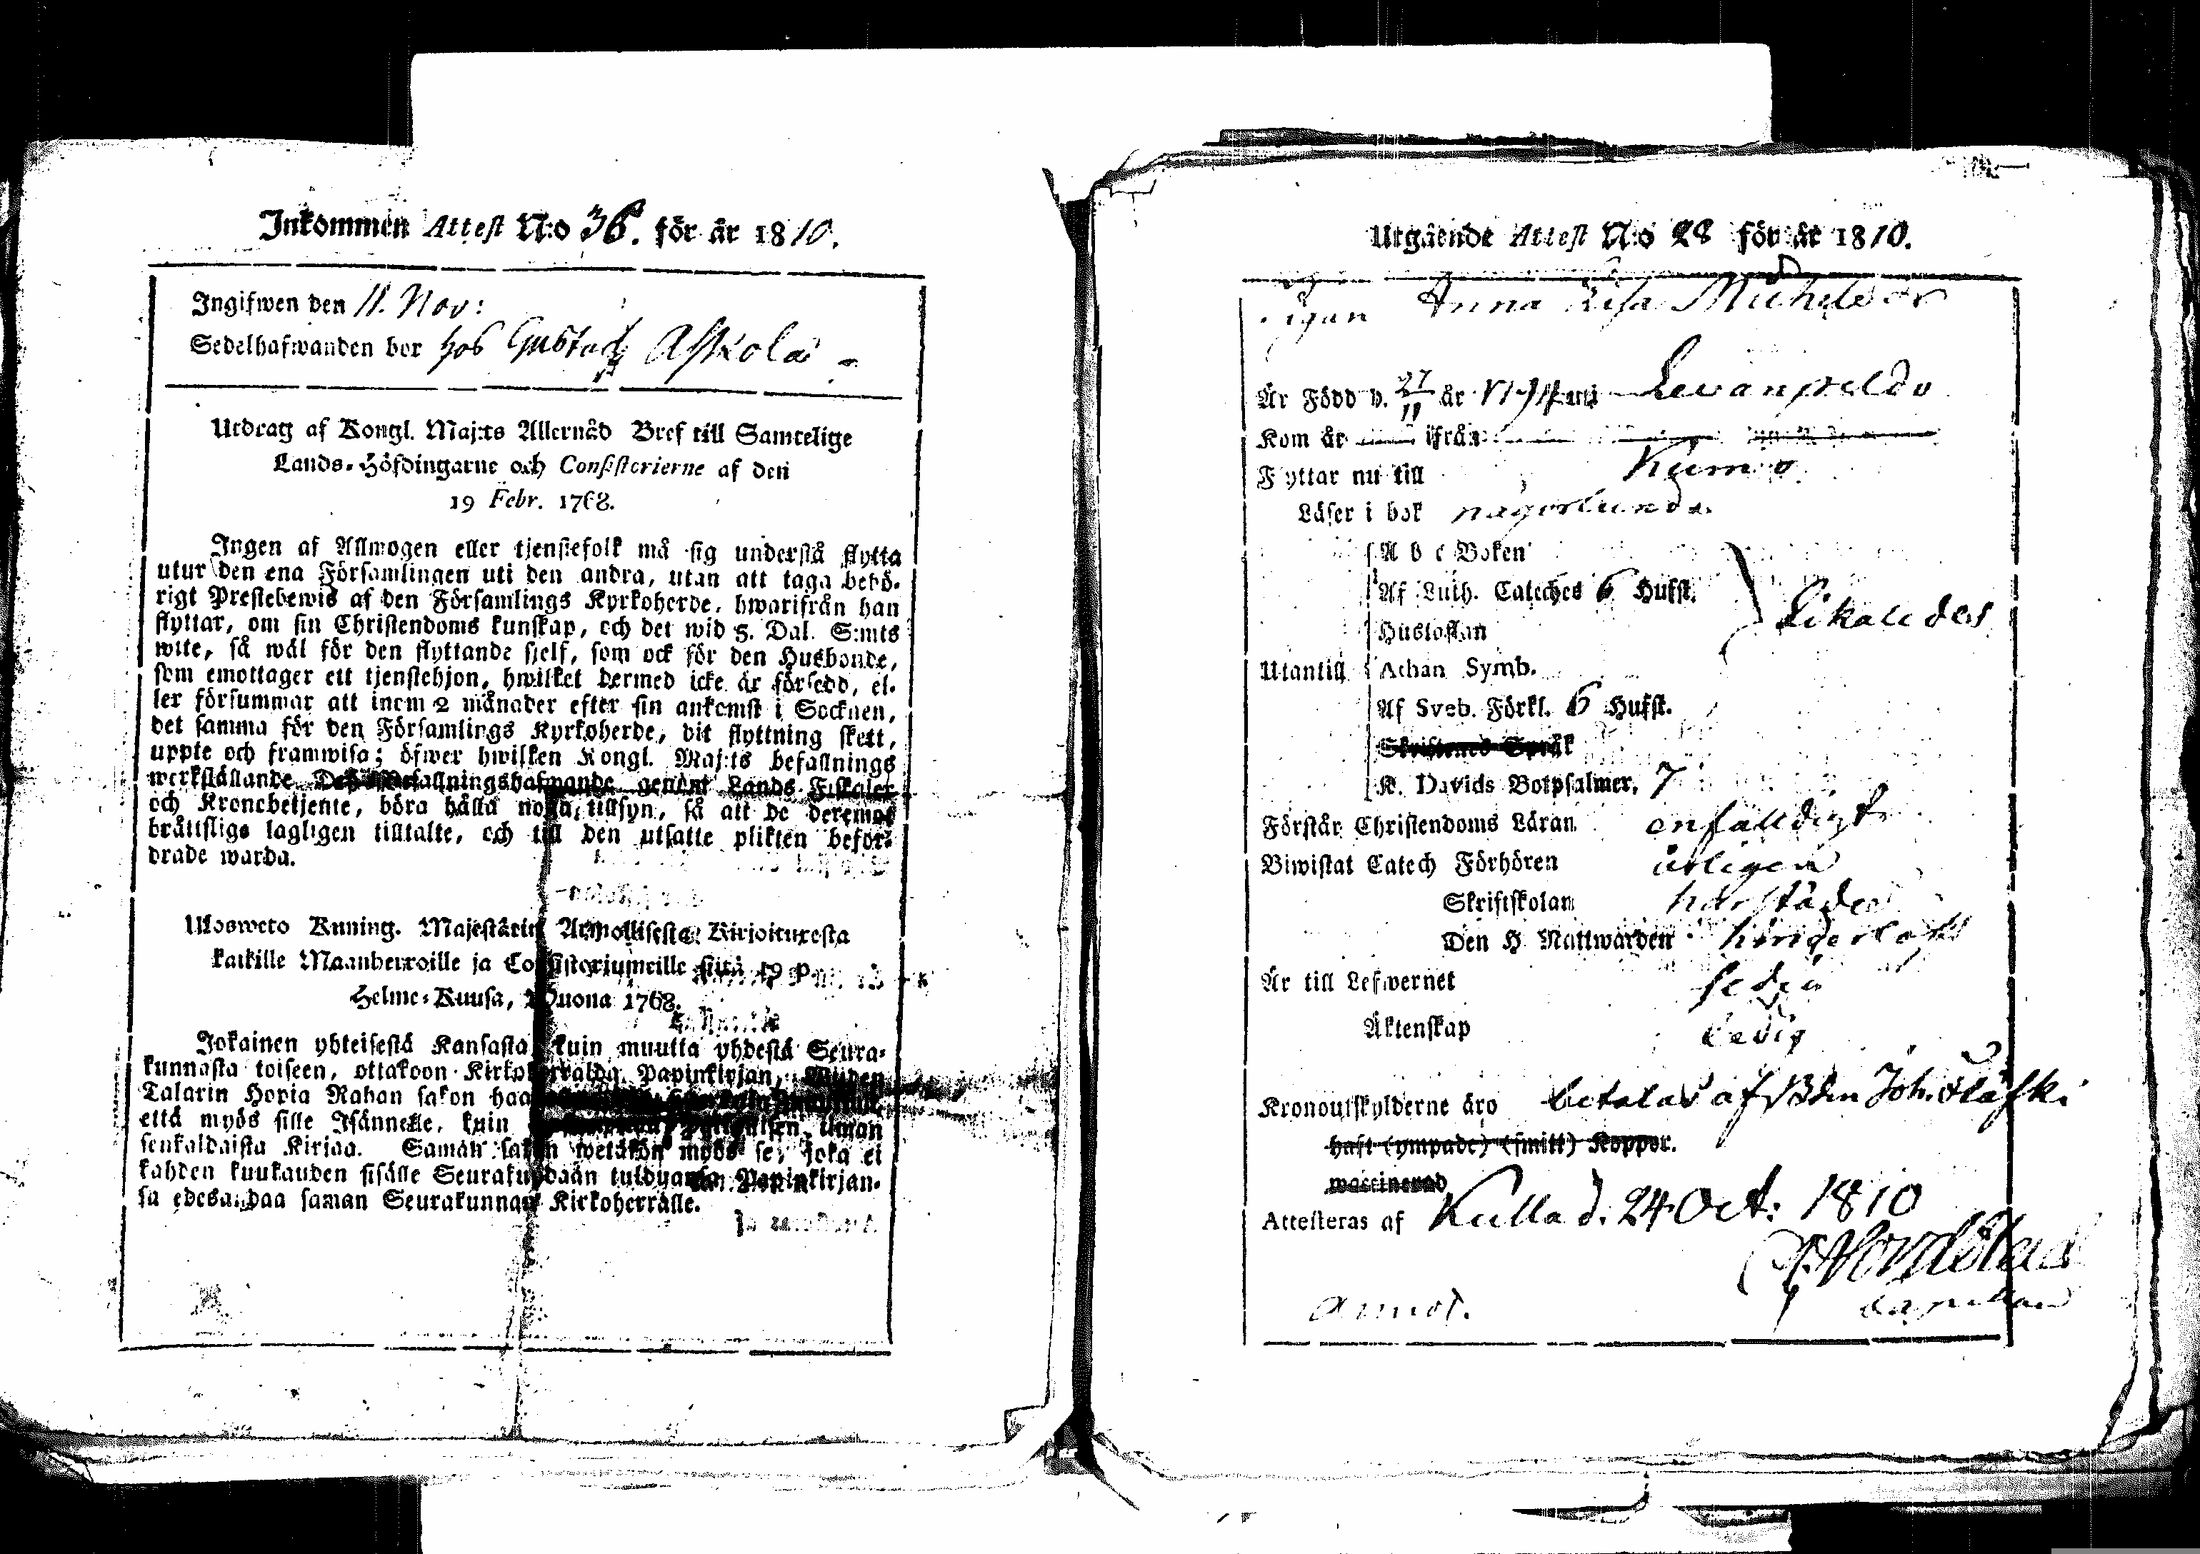 Inkommen Attest N:o 36. för år 1810.
Ingifwen den 11. Nov:
Sedelhafwanden bor hos Gustaf Askola
Utdrag af Kongl. Maj:ts Allernåd Bref till Samtelige
Lands-Höfdingarne och Consistorierne af den
19 Febr. 1768.
Ingen af Allmogen eller tjenstefolk må sig understå flytta
utur den ena Församlingen uti den andra, utan att taga behö-
rigt Prestebewis af den Församlings Kyrkoherde, hwarifrån han
flyttar, om sin Christendoms kunskap, och det wid 5. Dal. S:mts
wite, så wäl för den flyttande sjelf, som ock för den Husbonde,
som emottager ett tjenstehjon, hwilket dermed icke är försedd, el-
ler försummar att inom 2 månader efter sin ankomst i Socknen,
det samma för den Församlings Kyrkoherde, dit flyttning skett,
uppte och framwisa; öfwer hwilken Kongl. Maj:ts befallnings
werkställande Befallningshafwande genom Lands Fiskaler
och Kronobetjente, böra hålla noga tillsyn, så att de deremot
bråttslige lagligen tilltalte, och till den utsatte plikten befor-
drade warda.
Ulosweto Kuning. Majestätin Armollisesta Kirjoituxesta
kaikille Maanherroille ja Consistoriumeille siitä 19 p.
Helme-Kuusa, Wuona 1768.
Jokainen yhteisestä Kansasta kuin muutta yhdestä Seura-
kunnasta toiseen, ottakoon Kirkoherralda Papinkirjan, Wijden
Talarin Hopia Rahan sakon haa
että myös sille Isännelle, kuin ilman
senkaldaista Kirjaa. Saman sakon wetäkön myös se, joka ei
kahden kuukauden sisälle Seurakundaan tulduansa Papinkirjan-
sa edesandaa saman Seurakunnan Kirkoherralle.
Utgående Attest N:o 28 för år 1810.
Pigan Anna Lisa Michelsdr
Är Född d. 27/11 år 1791 uti Levanpeldo
Kom år ifrån
Flyttar nu till Kumo
Läser i bok någorlunda
A b c Boken
Af Luth. Cateches 6 Hufst.
Hustaflan
Likaledes
Utantill Athan Symb.
Af Sveb. Förkl. 6 Hufst.
Skriftenes Språk
K. Davids Botpsalmer, 7
Förstår Christendoms Läran enfaldigt
Biwistat Catech Förhören årligen
Skriftskolan härstädes
Den H Nattwarden
Är till Lefwernet
Äktenskap Ledig
Kronoutskylderne äro betalas af Bdn Joh.
haft (ympade) (smitt) Koppor.
waccinerad
Attesteras af Kulla d. 24 Oct: 1810
Nordstad
Capellan